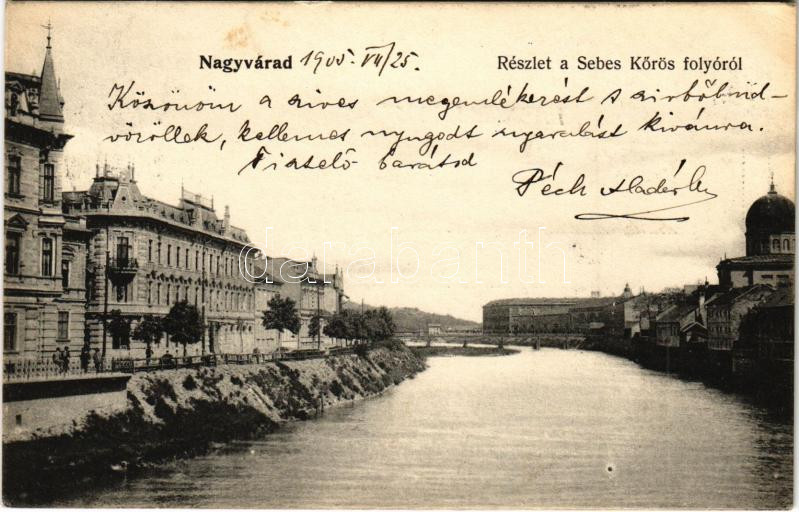 Nagyvárad 1905. VII/25.
Részlet a Sebes Kőrös folyóról
Köszönöm a szives megemlékezést s szivből üd-
vözöllek, kellemes nyugodt nyaralást kivánva.
Tisztelő barátod
Péch Aladár
darabanth